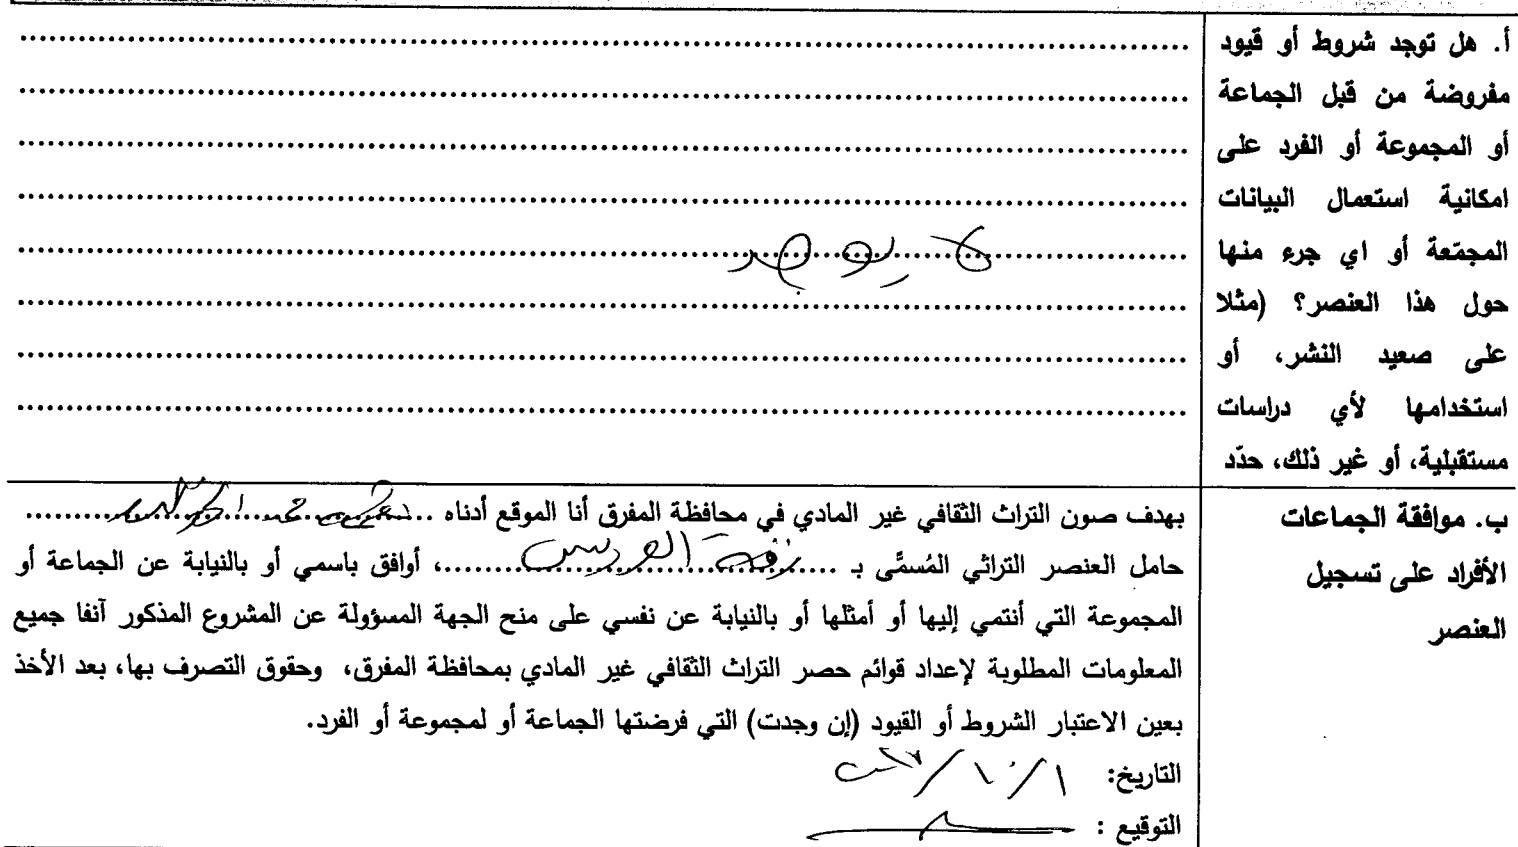 أ. هل توجد شروط أو قيود
مفروضة من قبل الجماعة
أو المجموعة أو الفرد على
امكانية استعمال البيانات
المجمّعة أو اي جرء منها
حول هذا العنصر؟ (مثلا
على صعيد النشر، أو
استخدامها لأي دراسات
مستقبلية، أو غير ذلك، حدّد
لا يوجد
ب. موافقة الجماعات
الأفراد على تسجيل
العنصر
بهدف صون التراث الثقافي غير المادي في محافظة المفرق أنا الموقع أدناه ... محمد ...
حامل العنصر التراثي المُسمَّى بـ ..... زفة العريس .....، أوافق باسمي أو بالنيابة عن الجماعة أو
المجموعة التي أنتمي إليها أو أمثلها أو بالنيابة عن نفسي على منح الجهة المسؤولة عن المشروع المذكور آنفا جميع
المعلومات المطلوبة لإعداد قوائم حصر التراث الثقافي غير المادي بمحافظة المفرق، وحقوق التصرف بها، بعد الأخذ
بعين الاعتبار الشروط أو القيود (إن وجدت) التي فرضتها الجماعة أو لمجموعة أو الفرد.
التاريخ: ١/١٠/
التوقيع :